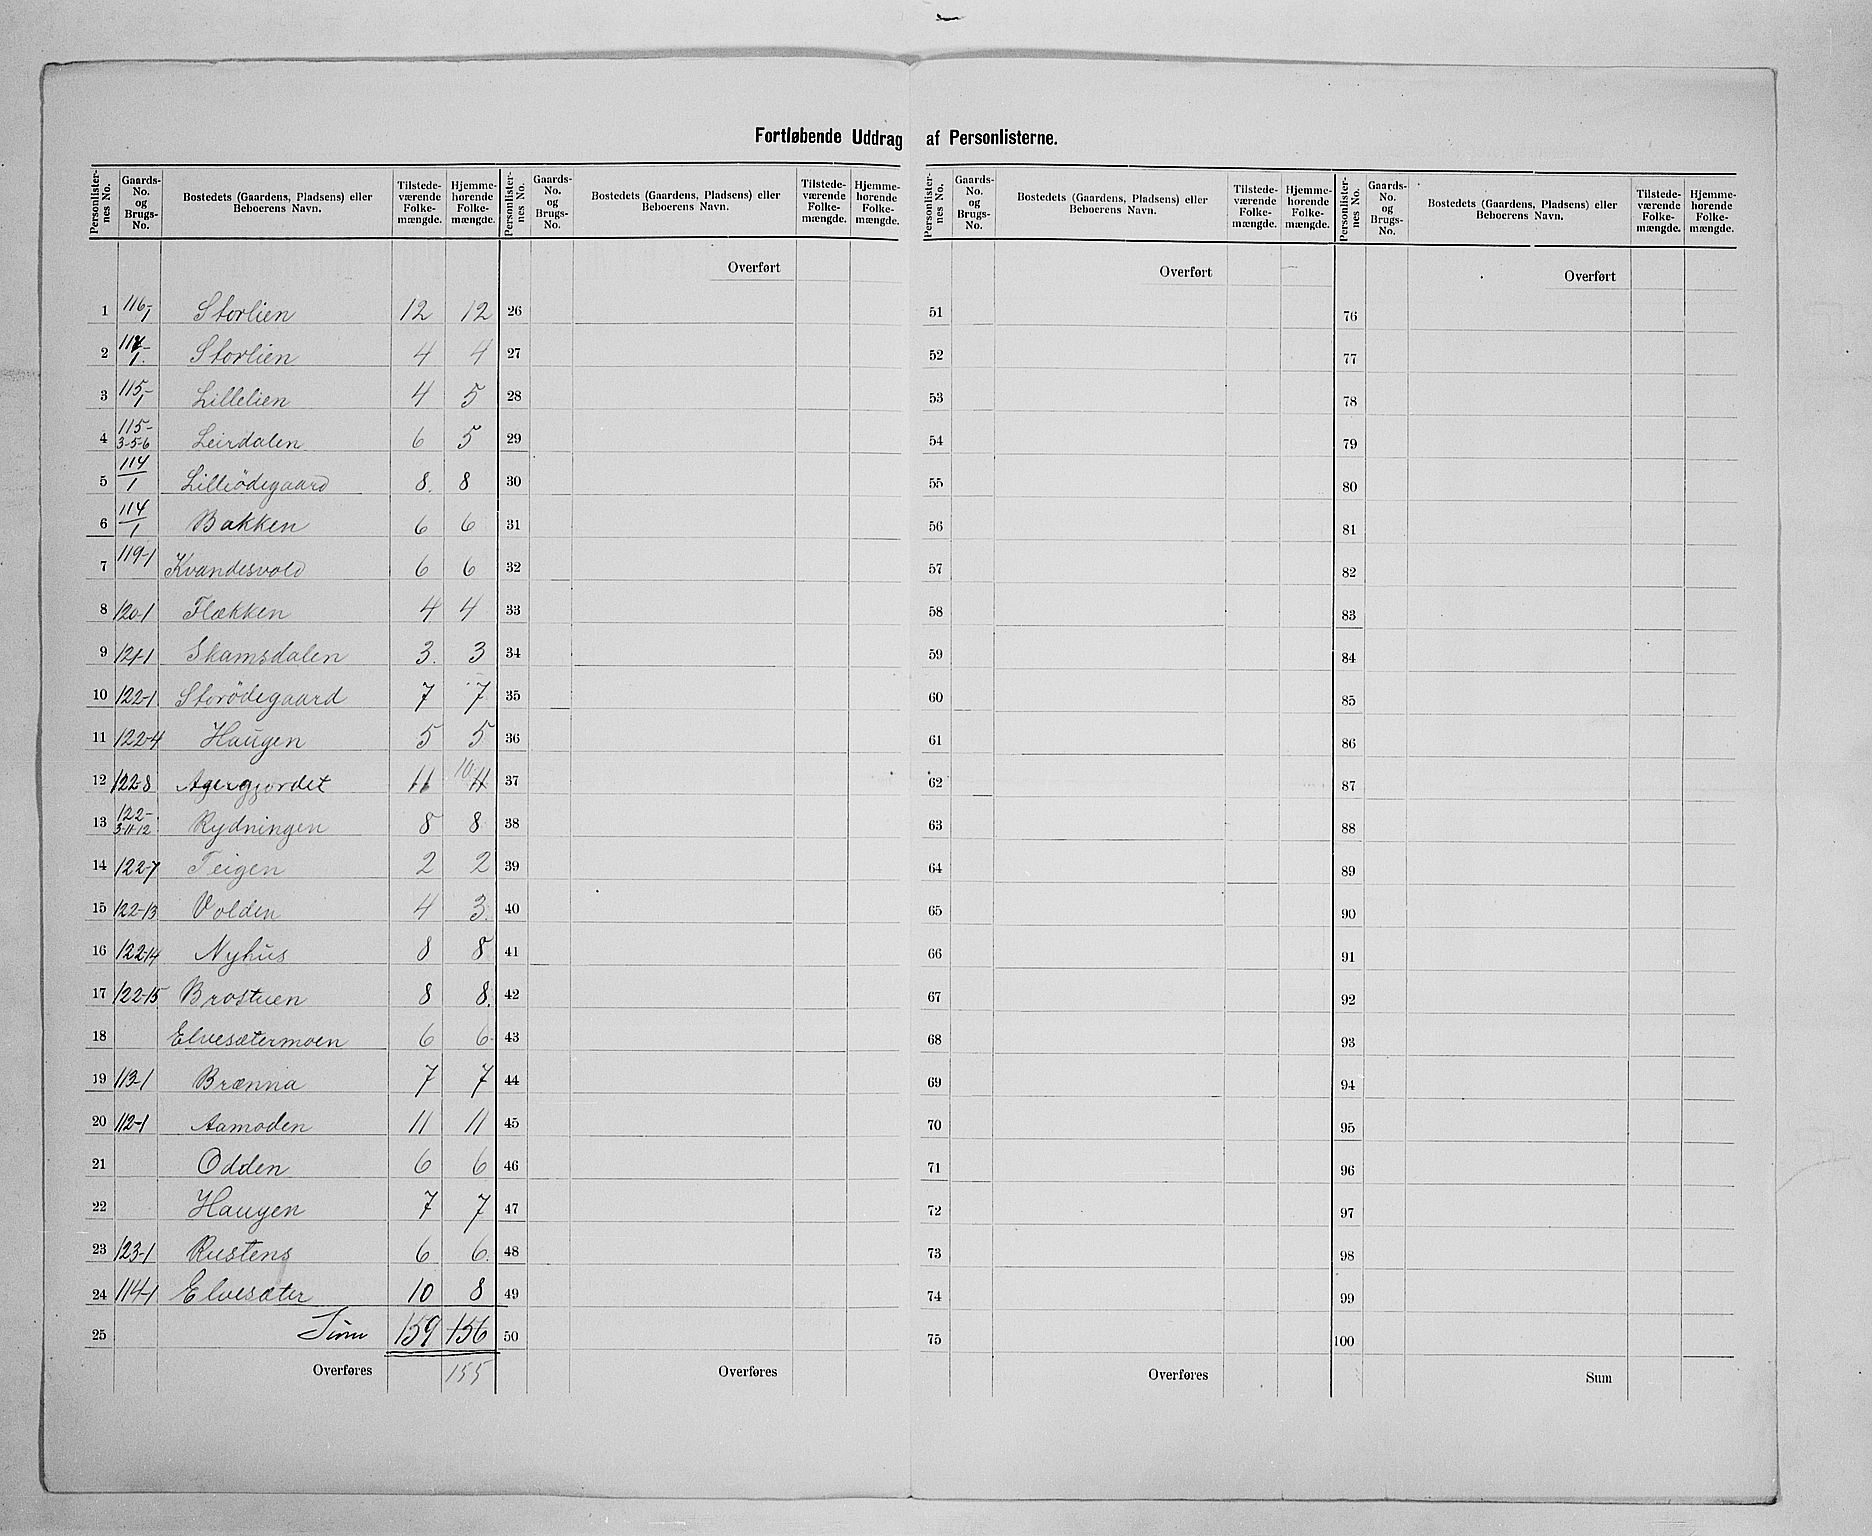 Fortløbende Uddrag af Personlisterne.
Personlister-nes No. | Gaards-No. og Brugs-No. | Bostedets (Gaardens, Pladsens) eller Beboerens Navn. | Tilstede-værende Folke-mængde. | Hjemme-hørende Folke-mængde. | Personlister-nes No. | Gaards-No. og Brugs-No. | Bostedets (Gaardens, Pladsens) eller Beboerens Navn. | Tilstede-værende Folke-mængde. | Hjemme-hørende Folke-mængde. | Personlister-nes No. | Gaards-No. og Brugs-No. | Bostedets (Gaardens, Pladsens) eller Beboerens Navn. | Tilstede-værende Folke-mængde. | Hjemme-hørende Folke-mængde. | Personlister-nes No. | Gaards-No. og Brugs-No. | Bostedets (Gaardens, Pladsens) eller Beboerens Navn. | Tilstede-værende Folke-mængde. | Hjemme-hørende Folke-mængde.
Overført Overført Overført
1 116-1 Storlien 12 12 26 51 76
2 Storlien 4 4 27 52 77
3 115-1 Lillelien 4 5 28 53 78
4 115-3-5-6 Leirdalen 6 5 29 54 79
5 114/1 Lilleödegaard 8. 8 30 55 80
6 114/1 Bakken 6 6 31 56 81
7 119-1 Kvandesvold 6 6 32 57 82
8 120-1 Flækken 4 4 33 58 83
9 121-1 Skamsdalen 3. 3 34 59 84
10 122-1 Storödegaard 7 7 35 60 85
11 122-4 Haugen 5 5 36 61 86
12 122-8 Agergjordet 11 10 11 37 62 87
13 122-3-11-12 Rydningen 8 8 38 63 88
14 122-7 Teigen 2 2 39 64 89
15 122-13 Volden 4 3. 40 65 90
16 122-14 Nyhus 8 8 41 66 91
17 122-15 Brostuen 8 8. 42 67 92
18 Elvesætermoen 6 6 43 68 93
19 113-1 Brænna 7 7 44 69 94
20 112-1 Aamoden 11 11 45 70 95
21 Odden 6 6 46 71 96
22 Haugen 7 7 47 72 97
23 123-1 Rustens 6 6. 48 73 98
24 114-1 Elvesæter 10 8 49 74 99
25 Sum 159 156 50 75 100
Overføres 155 Overføres Overføres Sum